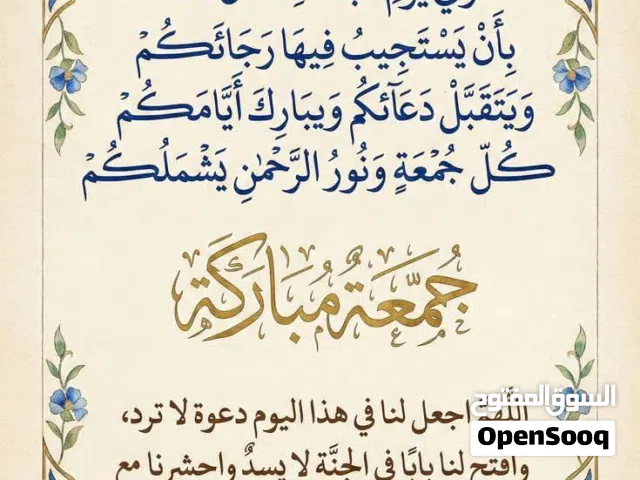 بِأَنْ يَسْتَجِيبُ فِيهَا رَجَائَكُمْ
وَيَتَقَبَّلْ دَعَآئكُم وَيبَارِكَ أَيَّامَكُمْ
كُلّ جُمْعَةٍ وَنُورُ الرَّحْمٰنِ يَشْمَلُكُمْ
جُمَّعَةٌ مُبَارَكَة
اللَّهُمَّ اجعل لنا في هذا اليوم دعوة لا ترد،
وافتح لنا بابًا في الجنَّة لا يسدٌ واحشرنا مع
السوق المفتوح
OpenSooq